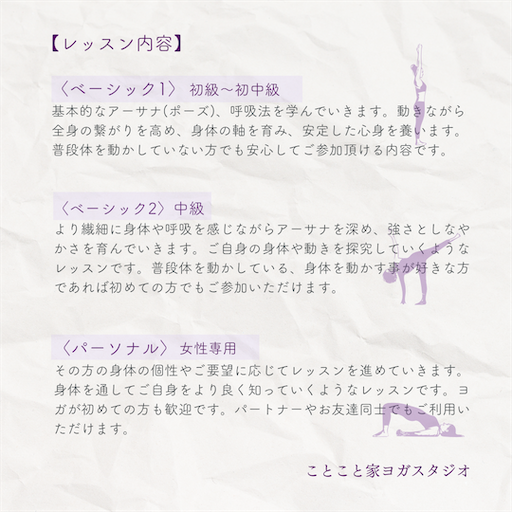 【レッスン内容】
〈ベーシック1〉 初級〜初中級
基本的なアーサナ(ポーズ)、呼吸法を学んでいきます。動きながら
全身の繋がりを高め、身体の軸を育み、安定した心身を養います。
普段体を動かしていない方でも安心してご参加頂ける内容です。
〈ベーシック2〉中級
より繊細に身体や呼吸を感じながらアーサナを深め、強さとしなや
かさを育んでいきます。ご自身の身体や動きを探究していくような
レッスンです。普段体を動かしている、身体を動かす事が好きな方
であれば初めての方でもご参加いただけます。
〈パーソナル〉 女性専用
その方の身体の個性やご要望に応じてレッスンを進めていきます。
身体を通してご自身をより良く知っていくようなレッスンです。ヨ
ガが初めての方も歓迎です。パートナーやお友達同士でもご利用い
ただけます。
ことこと家ヨガスタジオ